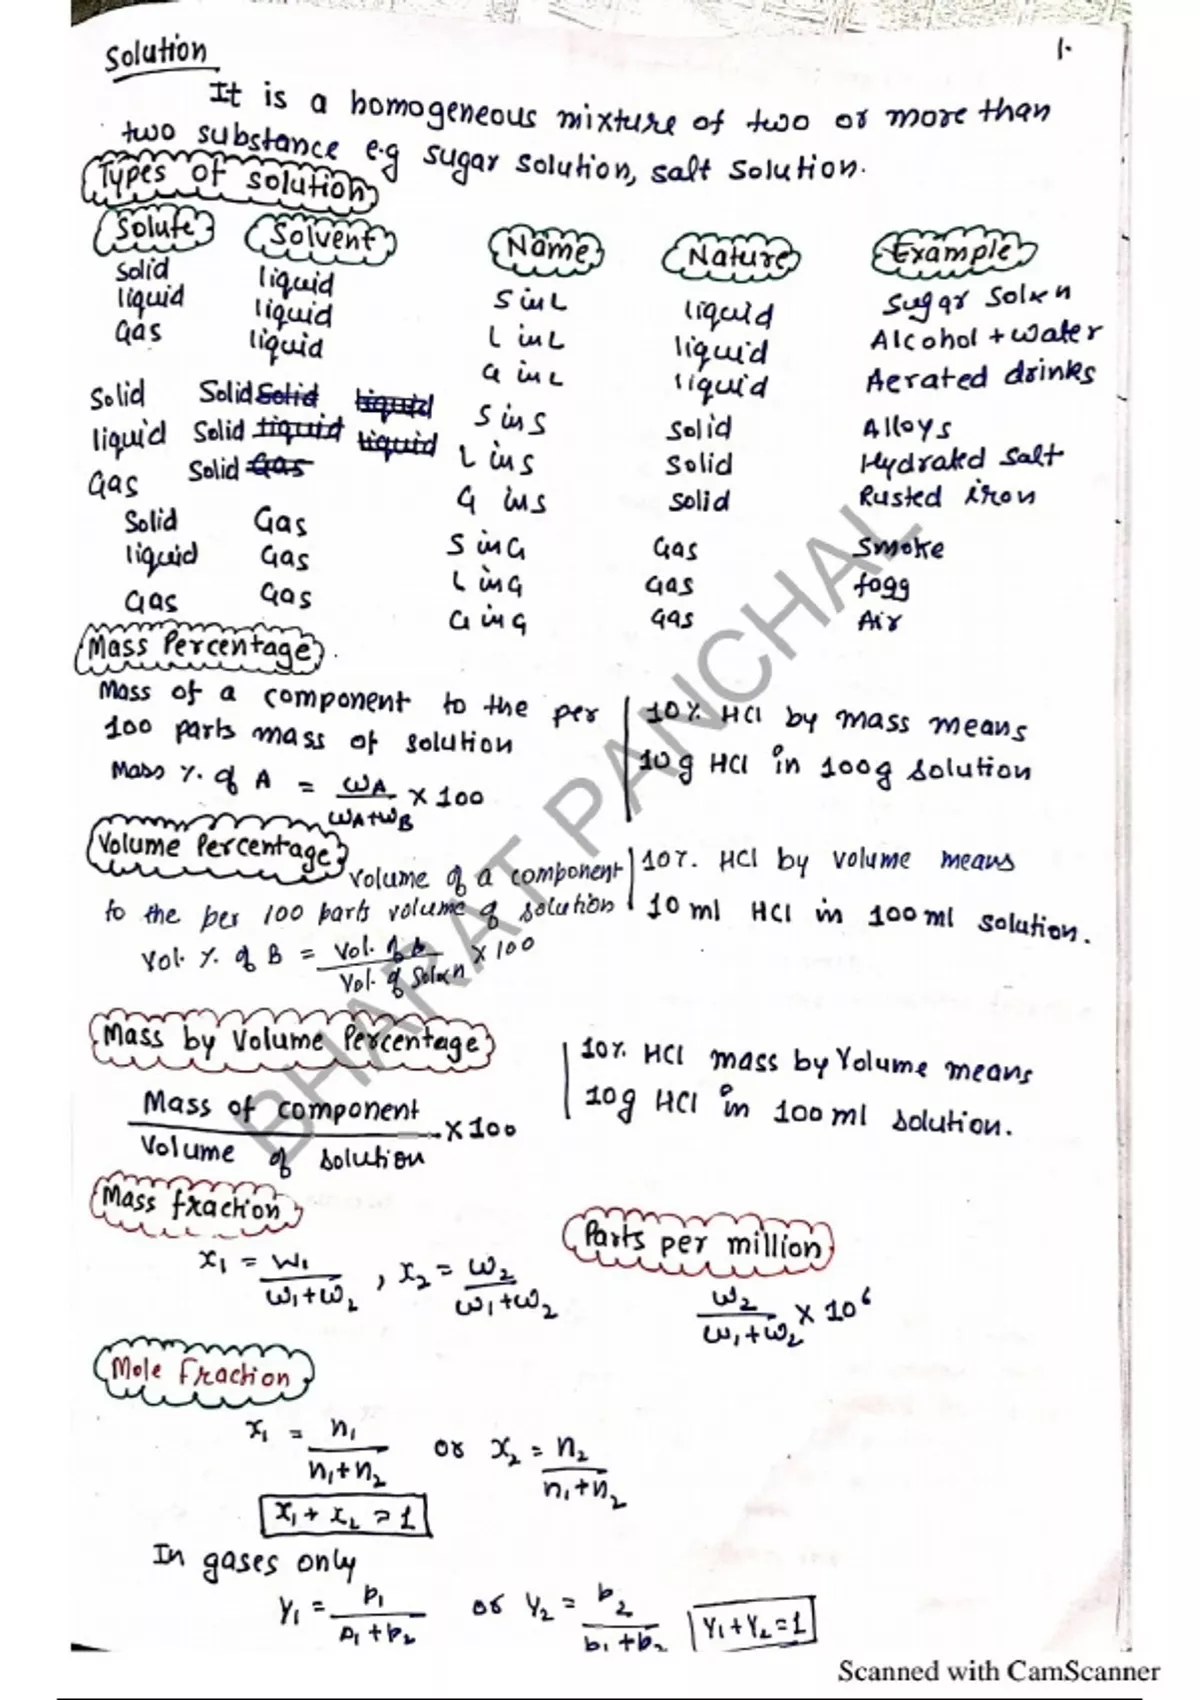 Solution
1.
It is a homogeneous mixture of two or more than
two substance e.g sugar solution, salt solution.
Types of solution
Solute Solvent Name Nature Example
Solid liquid S in L liquid Sugar Solxn
liquid liquid L in L liquid Alcohol + water
Gas liquid G in L liquid Aerated drinks
Solid Solid Solid liquid S in S Solid Alloys
liquid Solid liquid liquid L in S Solid Hydrated Salt
Gas Solid Gas G in S Solid Rusted iron
Solid Gas S in G Gas Smoke
liquid Gas L in G Gas fogg
Gas Gas G in G Gas Air
Mass Percentage
Mass of a component to the per
100 parts mass of solution
Mass %. of A = WA / WA+WB × 100
10% HCl by mass means
10g HCl in 100g solution
Volume Percentage
Volume of a component
to the per 100 parts volume of solution
Vol. %. of B = Vol. of B / Vol. of Solxn × 100
10%. HCl by volume means
10 ml HCl in 100 ml solution.
Mass by Volume Percentage
Mass of component / Volume of solution × 100
10% HCl mass by Volume means
10g HCl in 100 ml solution.
Mass fraction
x₁ = w₁ / w₁+w₂ , x₂ = w₂ / w₁+w₂
Parts per million
w₂ / w₁+w₂ × 10⁶
Mole fraction
x₁ = n₁ / n₁+n₂ or x₂ = n₂ / n₁+n₂
x₁ + x₂ = 1
In gases only
Y₁ = p₁ / p₁+p₂ or Y₂ = p₂ / p₁+p₂ Y₁+Y₂=1
BHARAT PANCHAL
Scanned with CamScanner